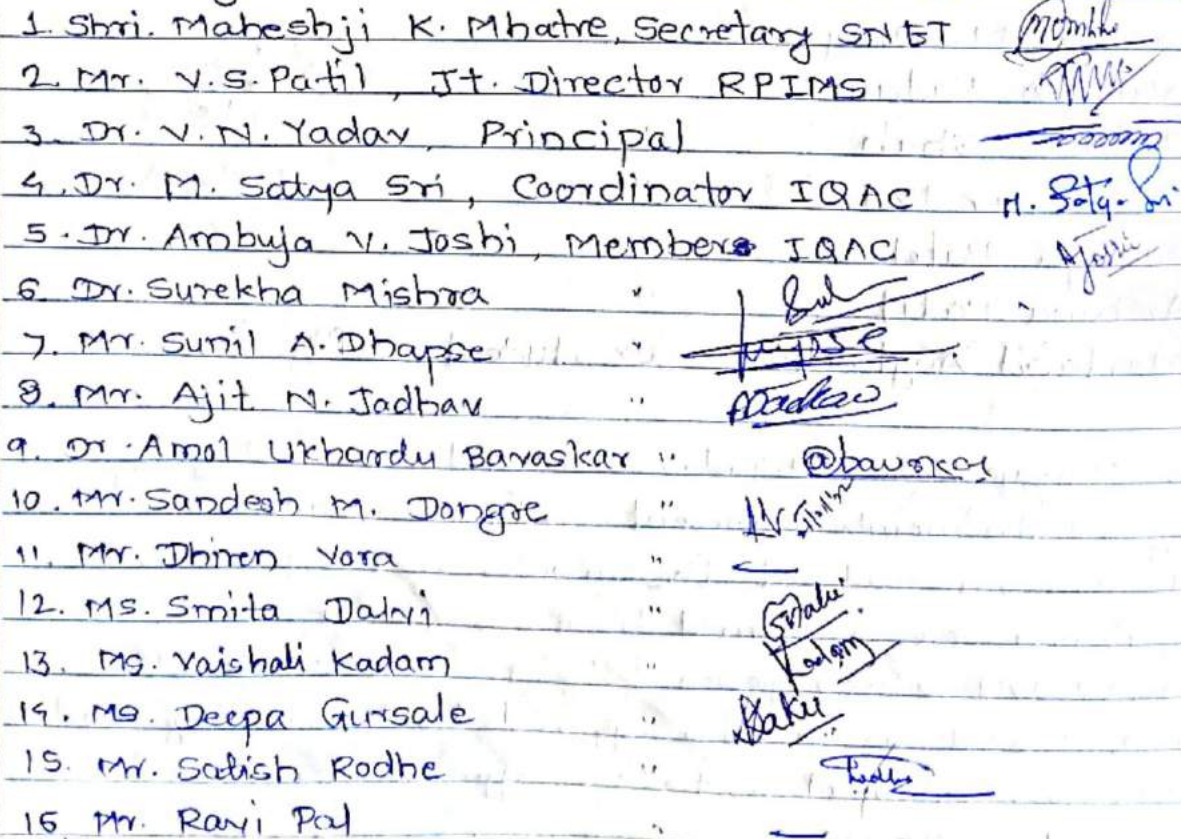 1. Shri. Maheshji K. Mhatre, Secretary SNET
2. Mr. V.S. Patil, Jt. Director RPIMS
3. Dr. V.N. Yadav, Principal
4. Dr. M. Satya Sri, Coordinator IQAC M. Satya Sri
5. Dr. Ambuja V. Joshi, Members IQAC AJoshi
6. Dr. Surekha Mishra "
7. Mr. Sunil A. Dhapse "
8. Mr. Ajit N. Jadhav " AJadhav
9. Dr. Amol Ukhardu Bavaskar " @bavaskar
10. Mr. Sandesh M. Dongre "
11. Mr. Dhiren Vora " —
12. Ms. Smita Dalvi " SDalvi
13. Ms. Vaishali Kadam " Kadam
14. Ms. Deepa Gursale "
15. Mr. Satish Rodhe "
16 Mr. Ravi Pal " —